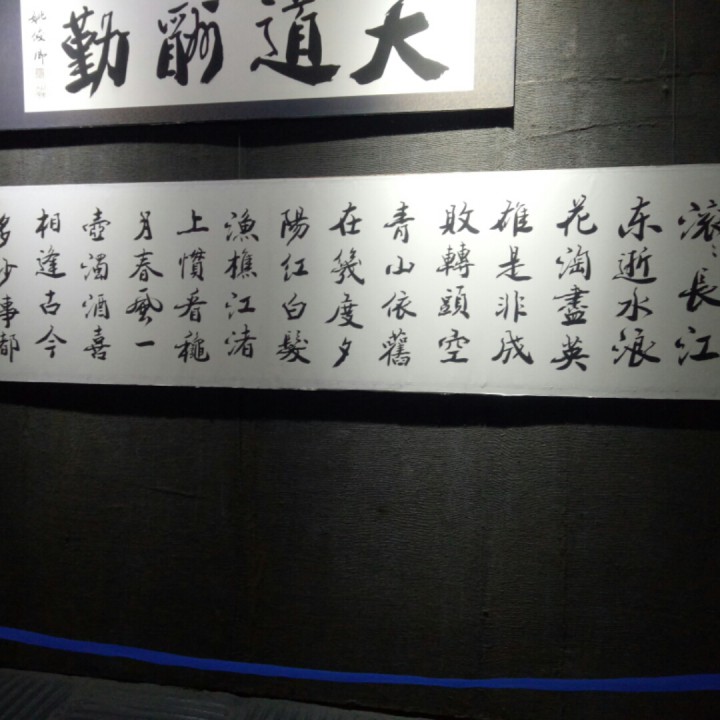 大道酬勤
姚俊卿
滚〻長江
东逝水浪
花淘盡英
雄是非成
敗轉頭空
青山依舊
在幾度夕
陽红白髮
漁樵江渚
上慣看穐
月春風一
壺濁酒喜
相逢古今
多少事都